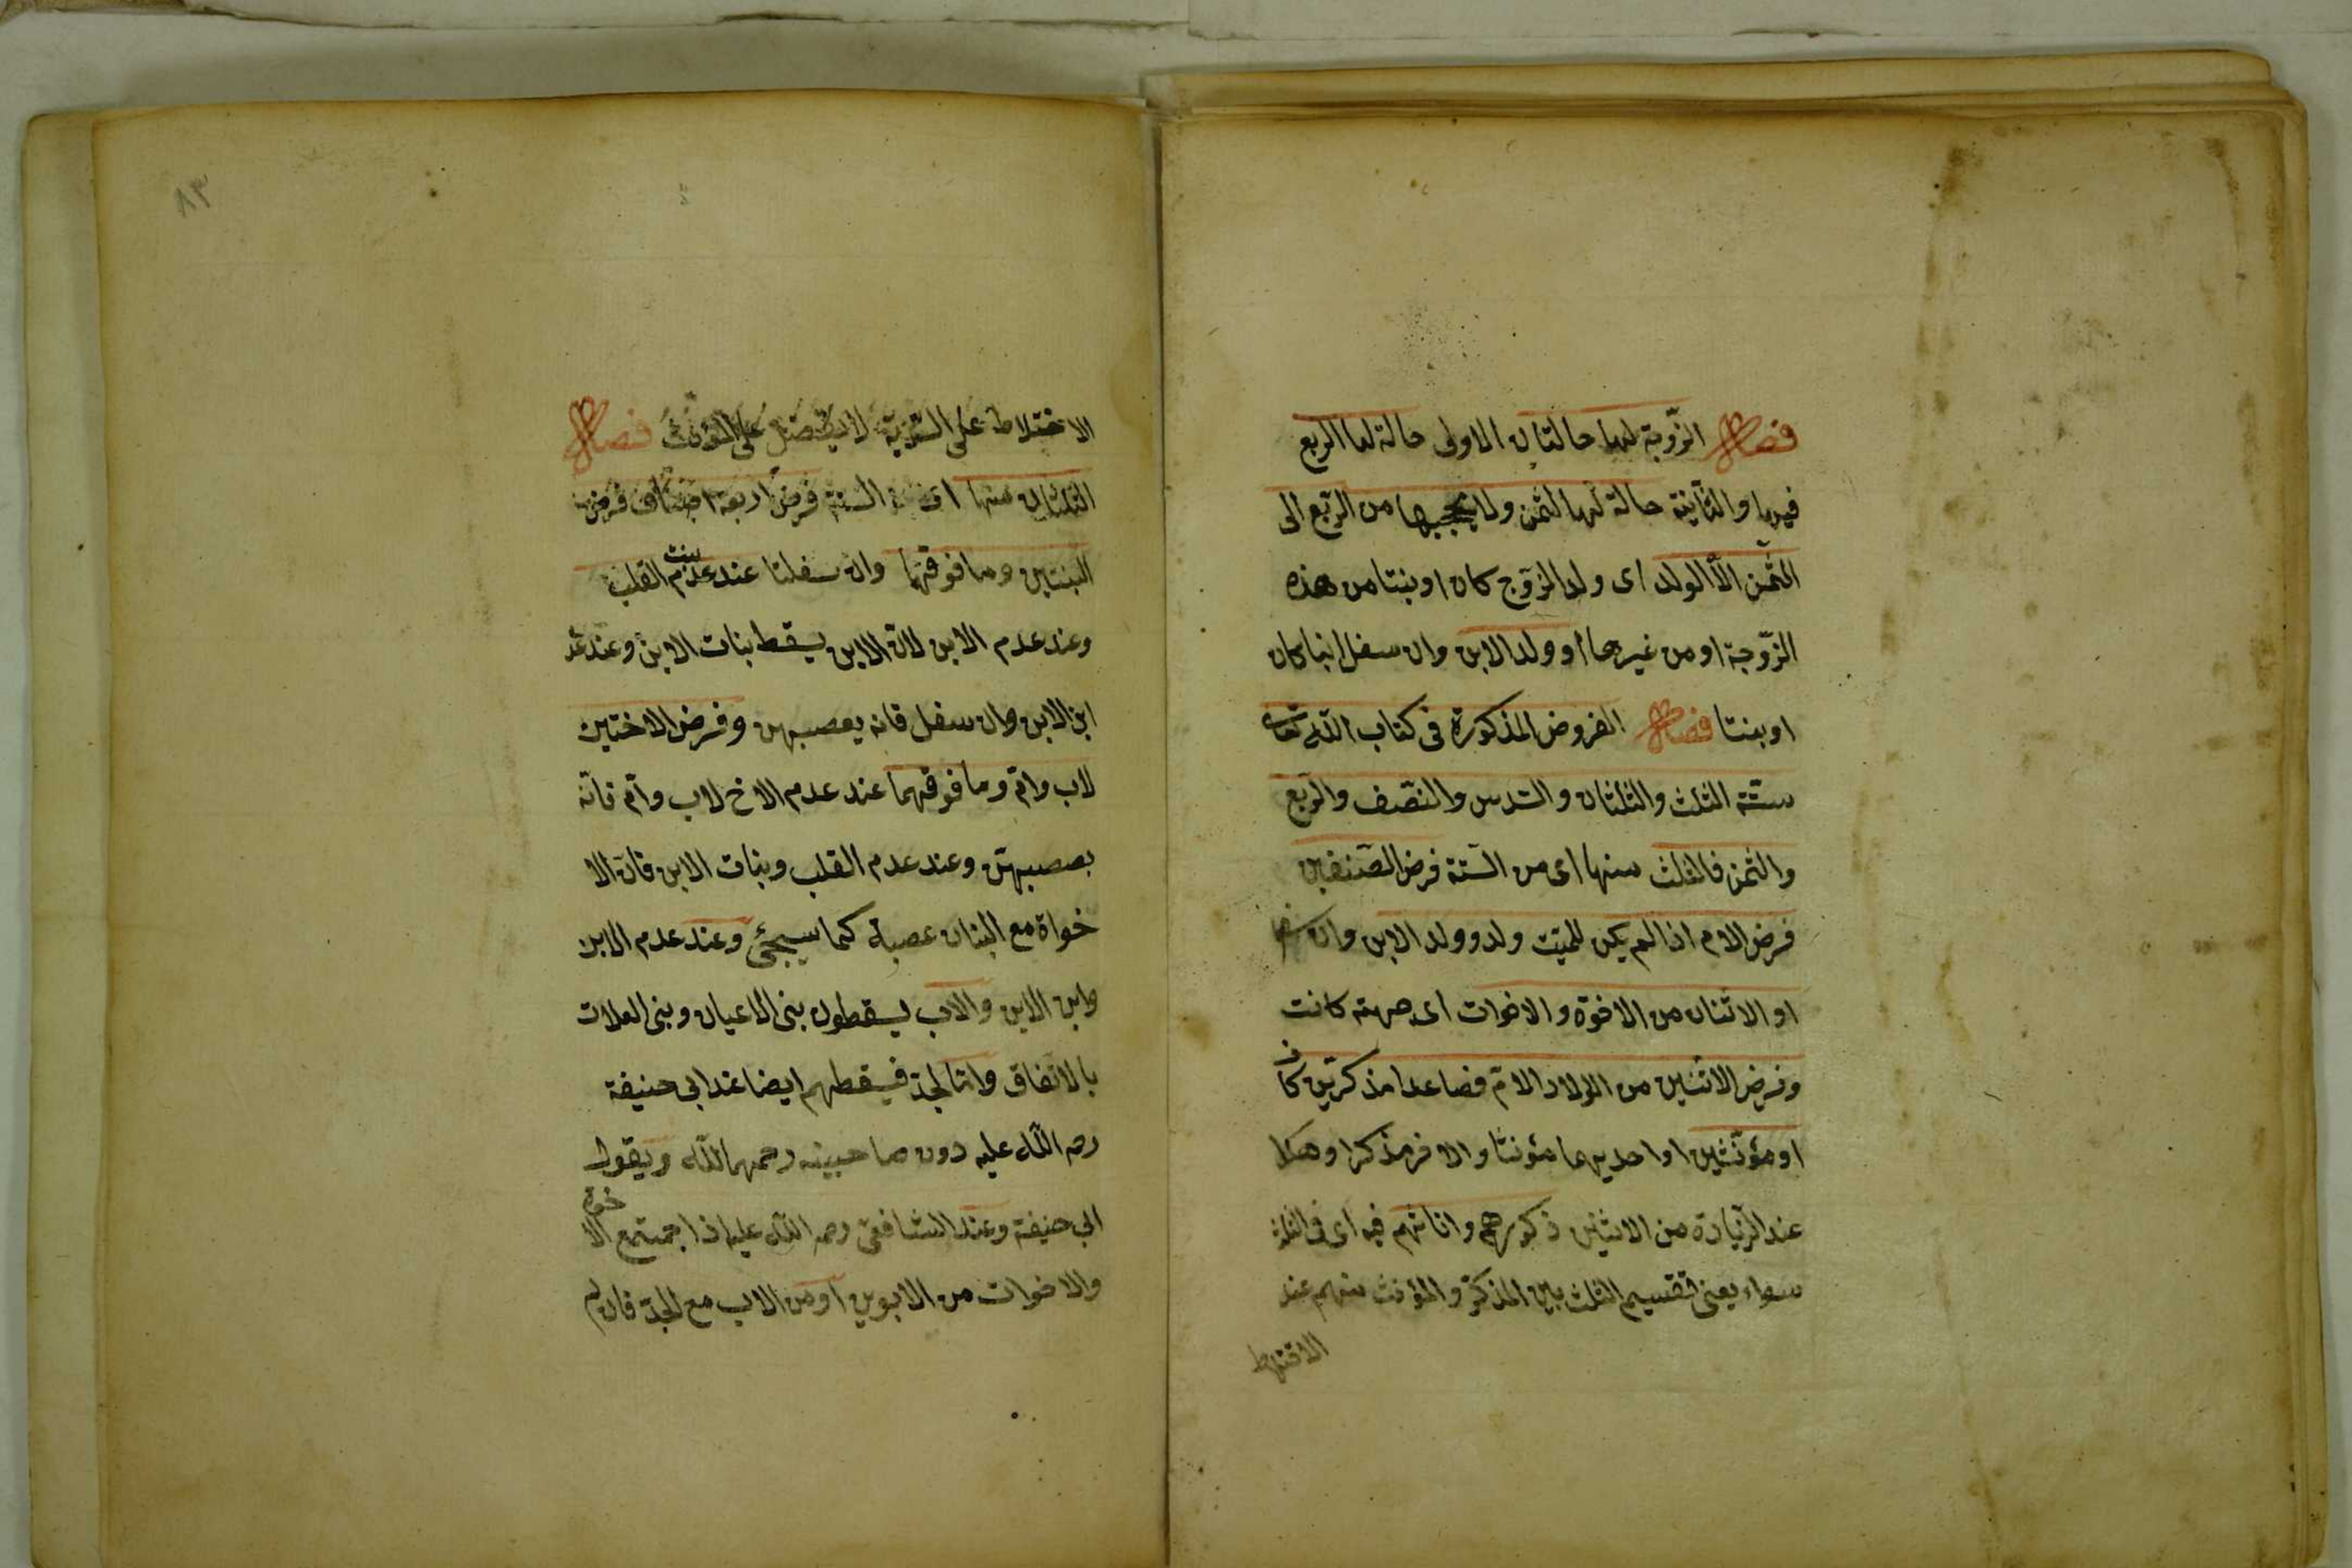 فصل الزّوجة لها حالتان الاولى حالة لها الربع
فيها والثّانية حالة لها الثمن ولا يحجبها من الرّبع الى
الثّمن الّا الولد اى ولد الزّوج كان او بنتا من هذه
الزّوجة او من غيرها او ولد الابن وان سفل ابنا كان
او بنتا فصل الفروض المذكورة فى كتاب اللّه تعالى
ستّة الثلث والثلثان والسّدس والنّصف والرّبع
والثمن فالثلث منها اى من السّتة فرض الصّنفين
فرض الام اذا لم يكن للميّت ولد وولد الابن وان سفل
او الاثنان من الاخوة والاخوات اى جهة كانت
وفرض الاثنين من الاولاد الامّ فصاعدا مذكرين كانا
او مؤنّثين او احديهما مؤنثا والاخر مذكرا وهكذا
عند الزّيادة من الاثنين ذكورهم واناثهم فيه اى فى الثلث
سواء يعنى تقسيم الثلث بين المذكّر والمؤنث منهم عند
الاختلاط
٨٣
الاختلاط على السّويّة لا يفضل على المؤنّث فصل
الثلثان منها اى من السّتة فرض اربعة اصناف فرض
البنتين وما فوقهما وان سفلتا عند عدم بنت القلب
وعند عدم الابن لانّ الابن يسقط بنات الابن وعند عد
ابن الابن وان سفل فانه يعصبهن وفرض الاختين
لاب وامّ وما فوقهما عند عدم الاخ لاب وامّ فانّه
يعصبهنّ وعند عدم القلب وبنات الابن فانّ الا
خواة مع البنات عصبة كما سيجئ وعند عدم الابن
وابن الابن والاب يسقطون بنى الاعيان وبنى العلات
بالاتفاق وامّا الجدّ فيسقطهم ايضا عند ابى حنيفة
رحمة اللّه عليه دون صاحبيه رحمهما اللّه وبقول
ابى حنيفة وعند الشافعىّ رحمة اللّه عليه اذا اجمتمع الاخوة
والاخوات من الابوين او من الاب مع الجدّ فان لم